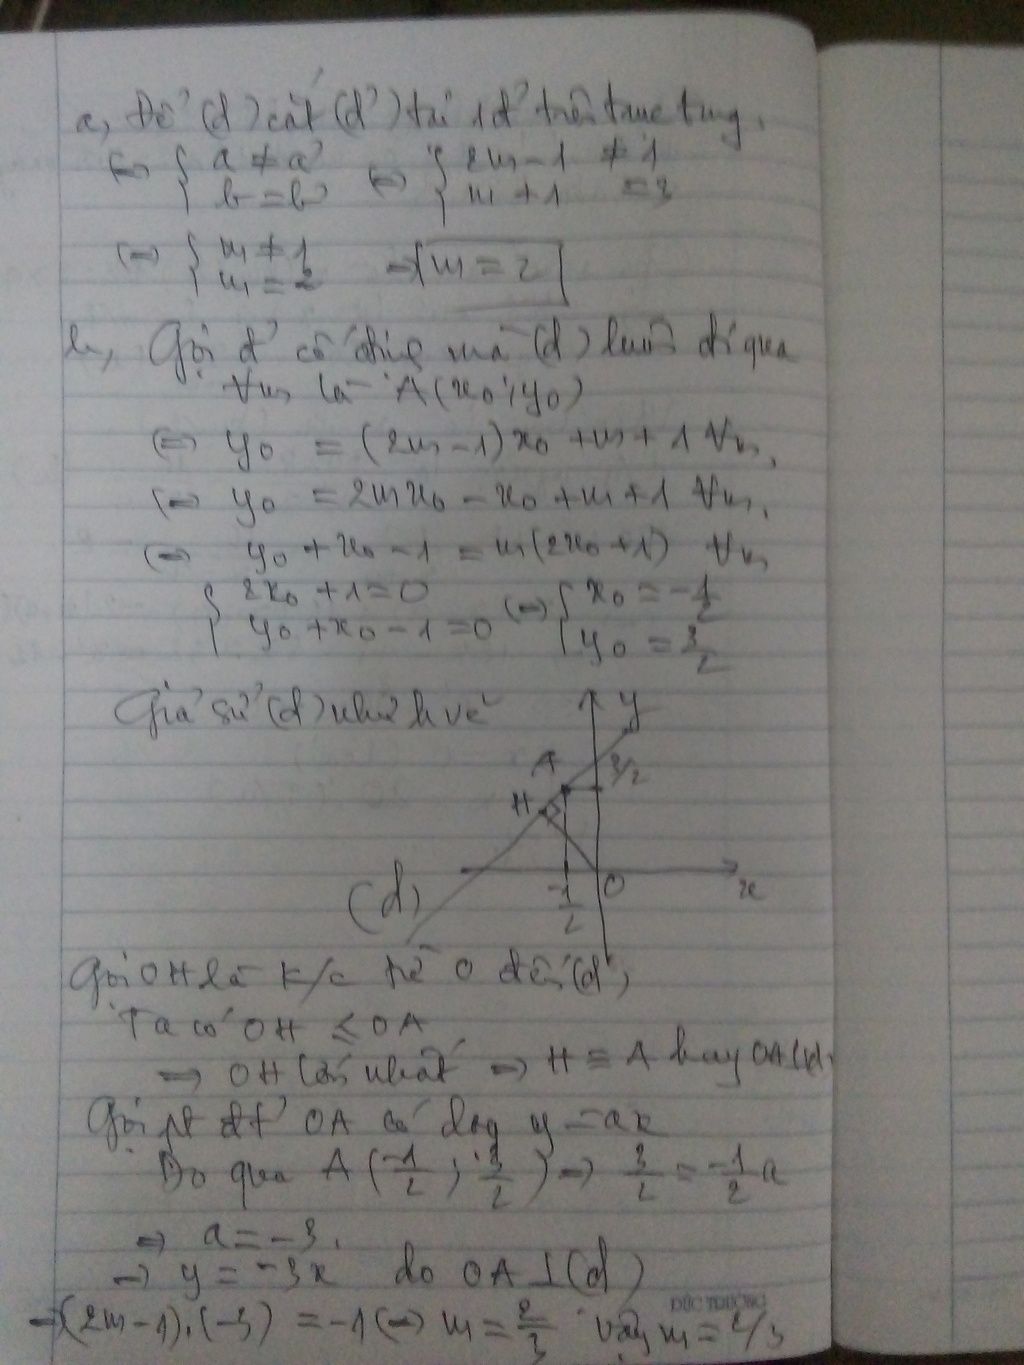 a, Để (d) cắt (d') tại 1đ' trên trục tung.
<=> { a ≠ a' <=> { 2m-1 ≠ 1
b = b' m + 1 = 3
<=> { m ≠ 1 => m = 2
m = 2
b, Gọi đ' cố định mà (d) luôn đi qua
∀m là A(x₀; y₀)
<=> y₀ = (2m-1)x₀ + m + 1 ∀m
<=> y₀ = 2mx₀ - x₀ + m + 1 ∀m
<=> y₀ + x₀ - 1 = m(2x₀ + 1) ∀m
{ 2x₀ + 1 = 0 <=> { x₀ = -1/2
y₀ + x₀ - 1 = 0 y₀ = 3/2
Giả sử (d) như h vẽ
y
A 3/2
H
(d) -1/2 O x
Gọi OH là k/c từ O đến (d)
Ta có OH ≤ OA
=> OH lớn nhất => H ≡ A hay OA⊥(d)
Gọi pt đt' OA có dạng y = ax
Do qua A (-1/2; 3/2) => 3/2 = -1/2 a
=> a = -3.
=> y = -3x do OA ⊥ (d)
=> (2m-1).(-3) = -1 <=> m = 2/3 Vậy m = 2/3